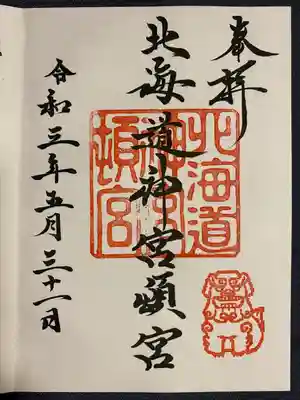 奉拝
北海道神宮頓宮
北海道
神宮
頓宮
令和三年五月三十一日